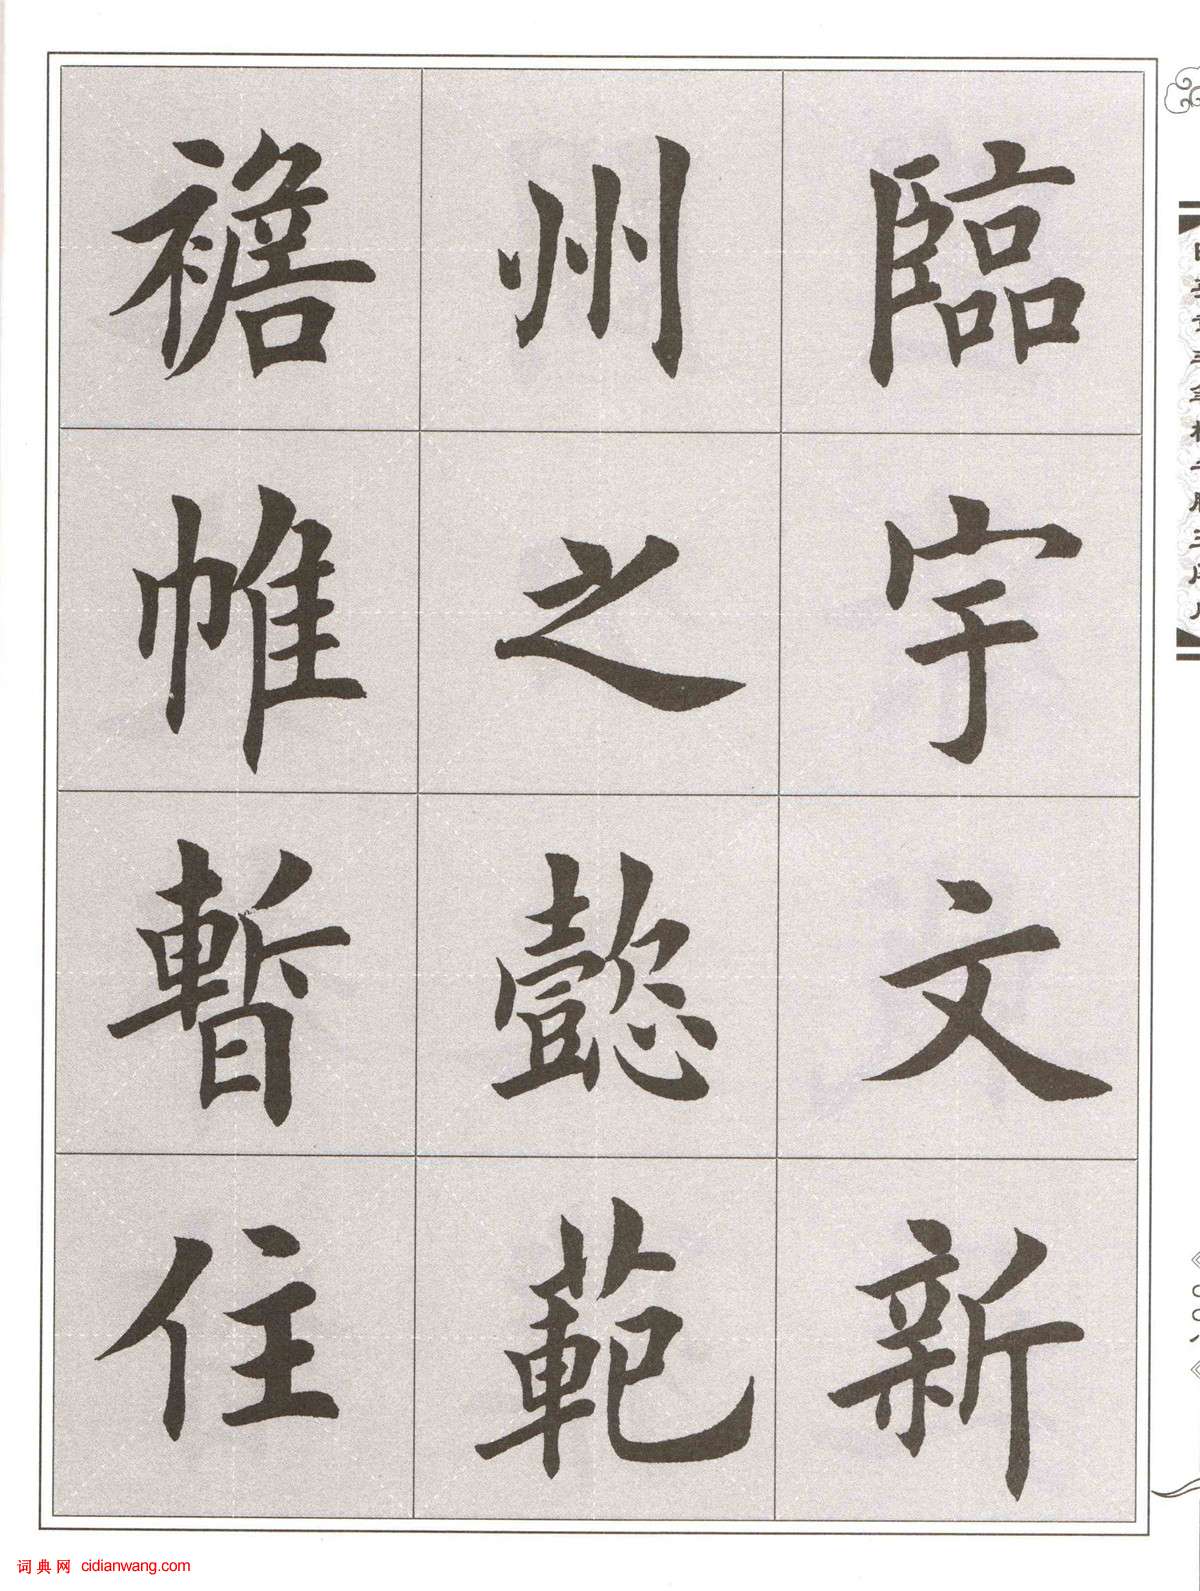 臨宇文新
州之懿範
襜帷暫住
词典网 cidianwang.com